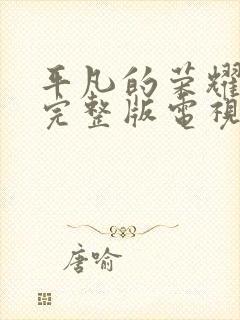 平凡的荣耀
完整版電視
唐喻